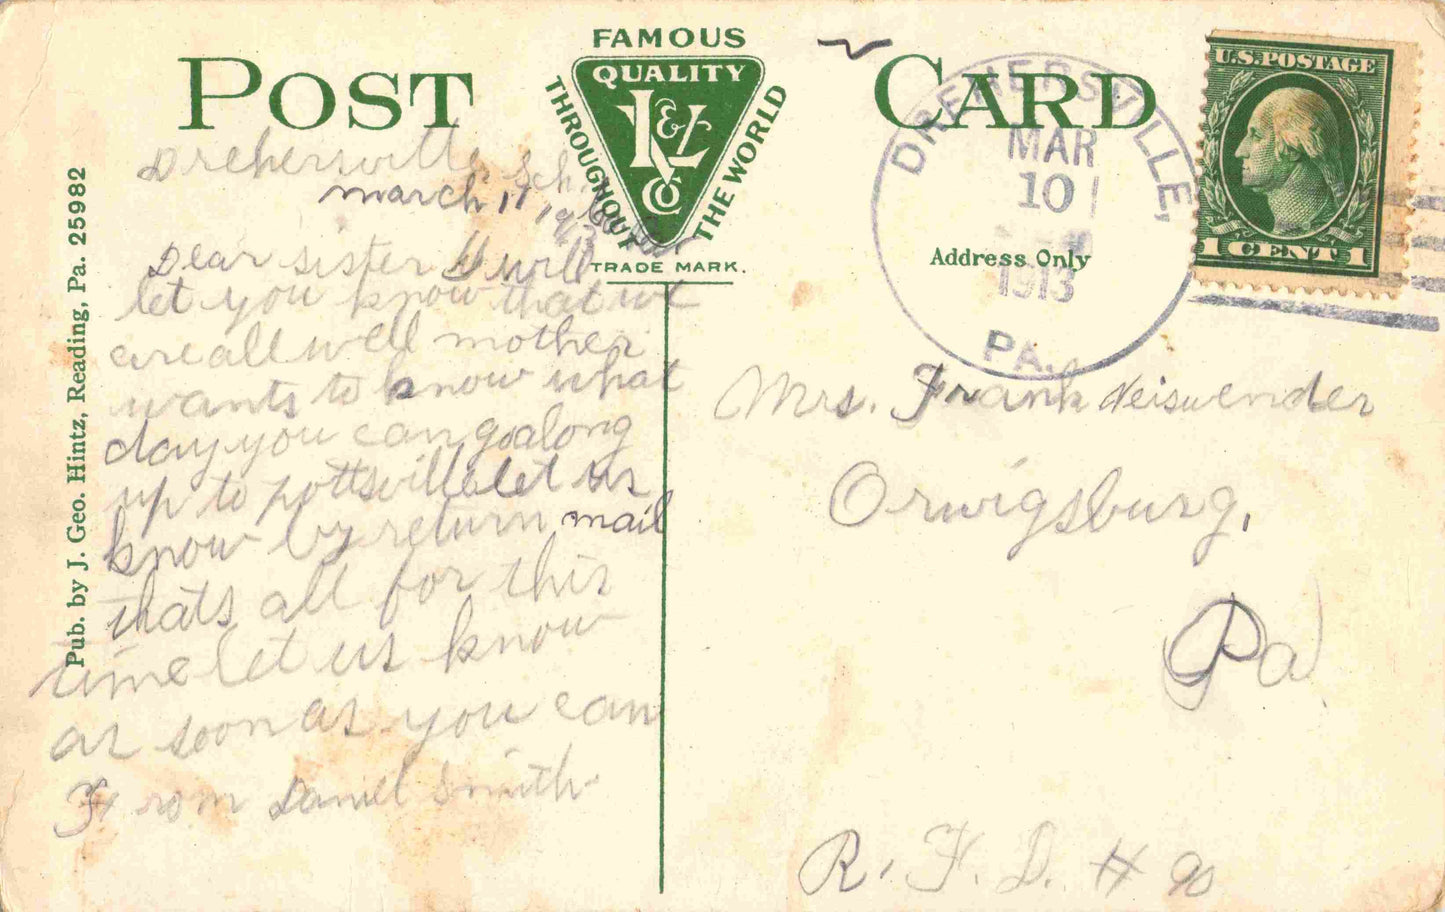 POST CARD
FAMOUS
QUALITY
K & L Co
THROUGHOUT THE WORLD
TRADE MARK.
DREHERSVILLE, PA.
MAR
10
1913
U.S. POSTAGE
1 CENT 1
Address Only
Pub. by J. Geo. Hintz, Reading, Pa. 25982
Drehersville, Sch.
march, 11, 1913
Dear sister I will
let you know that we
are all well mother
wants to know what
day you can go along
up to pottsville let us
know by return mail
thats all for this
time let us know
as soon as you can
From Daniel Smith
Mrs. Frank Neiswender
Orwigsburg,
Pa
R. F. D. #